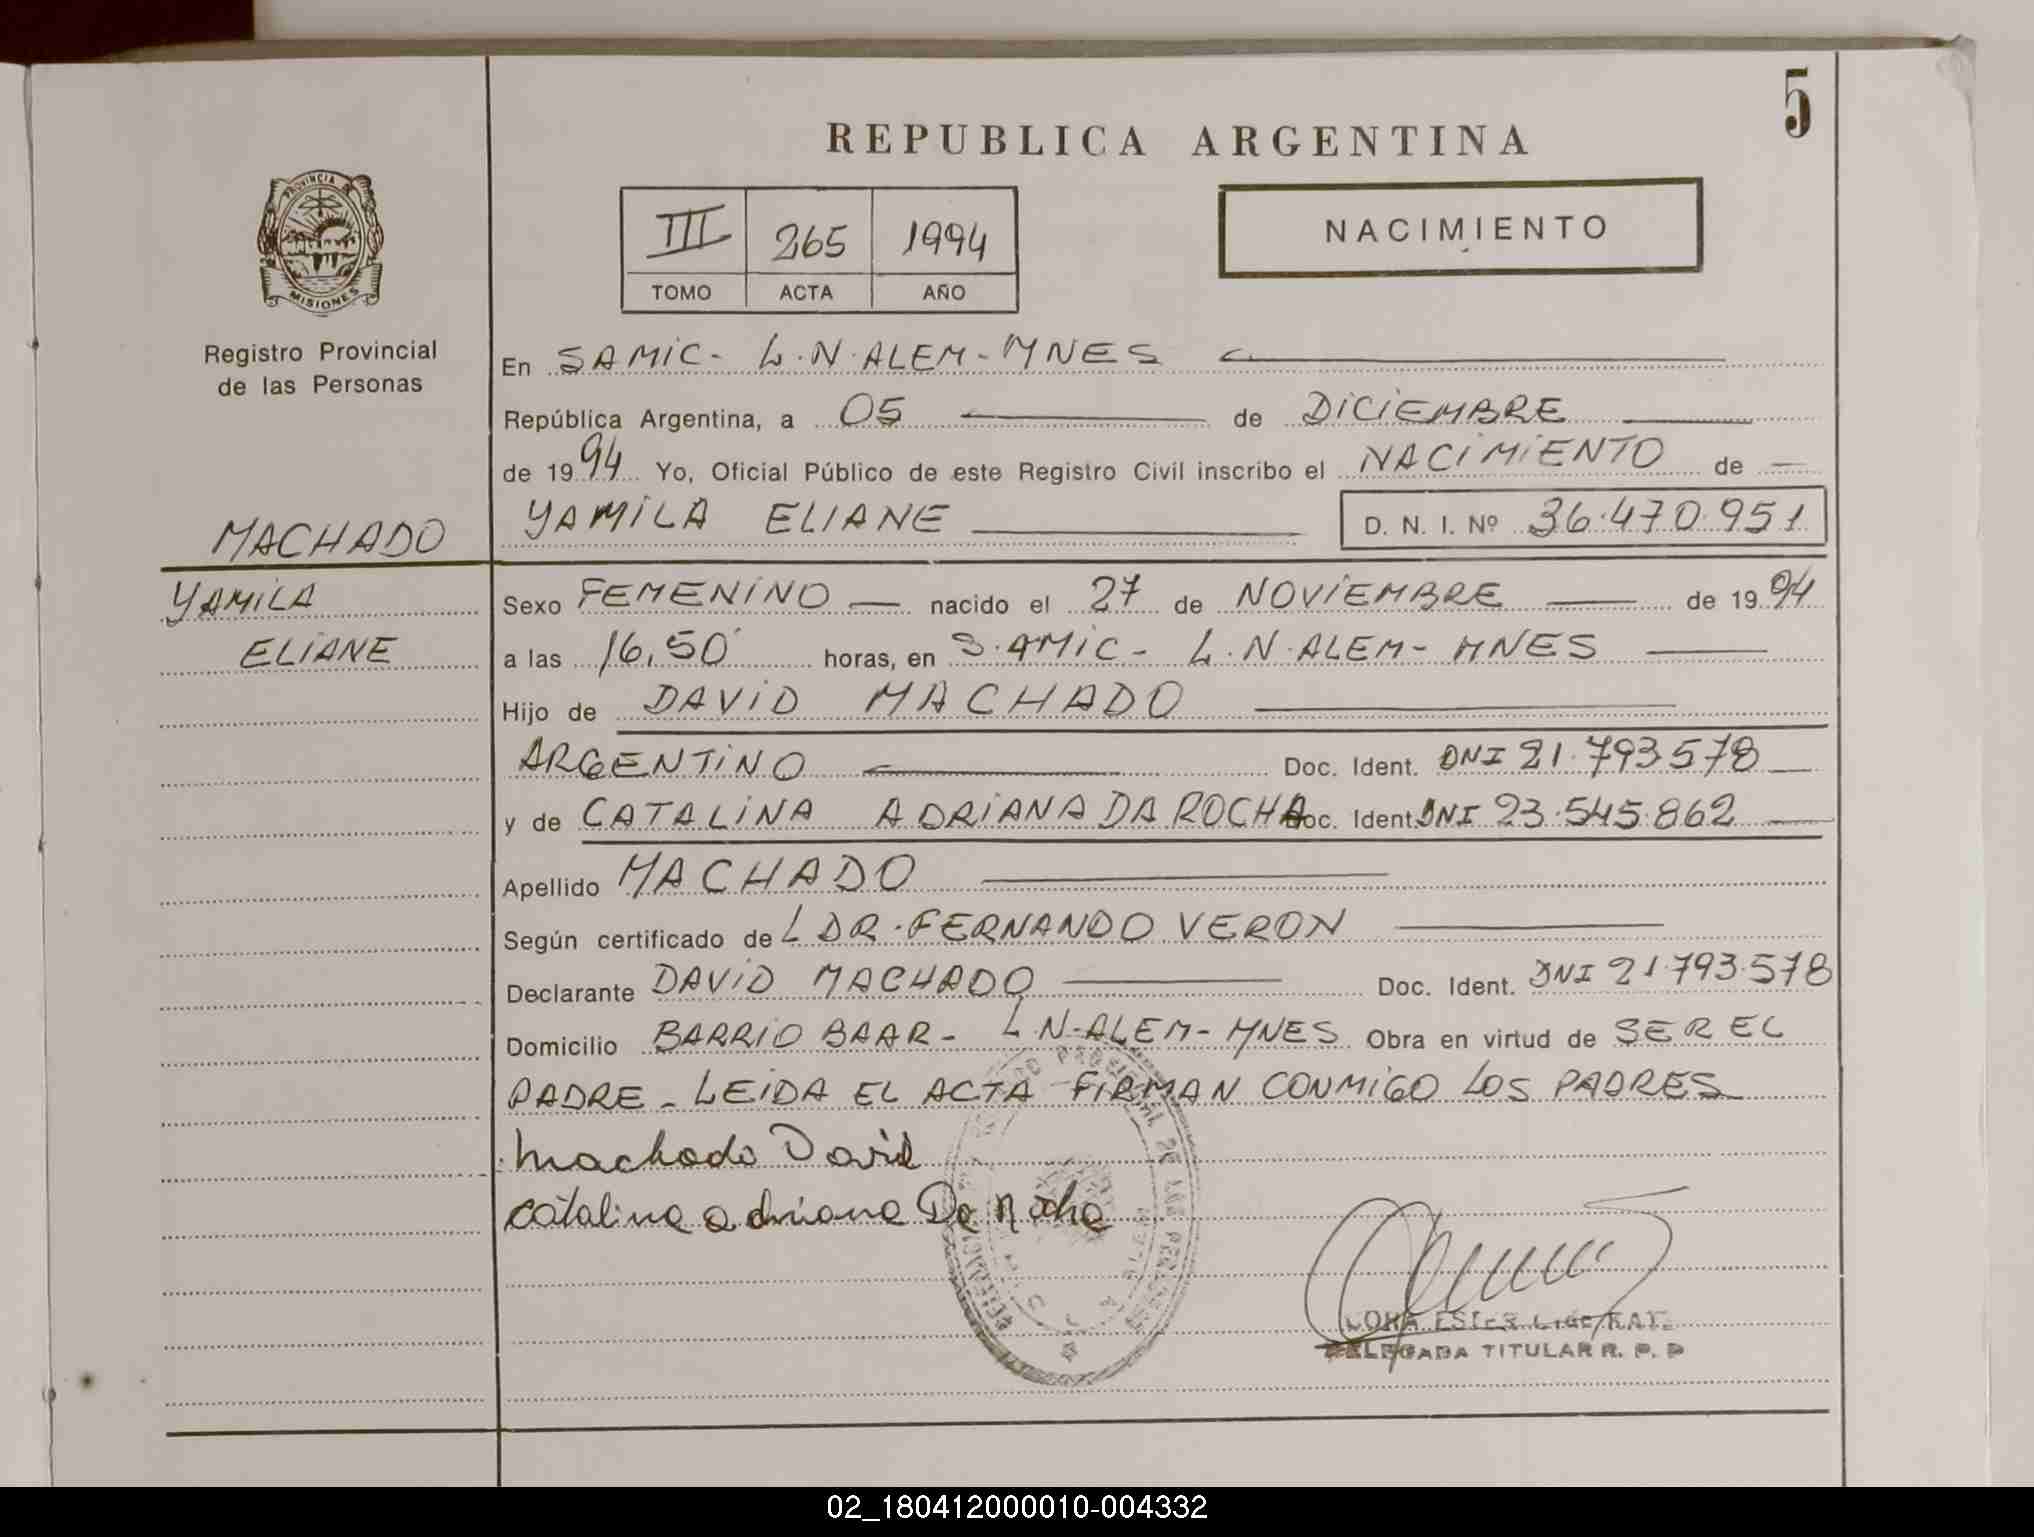 5
REPUBLICA ARGENTINA
III 265 1994
TOMO ACTA AÑO
NACIMIENTO
PROVINCIA DE
MISIONES
Registro Provincial
de las Personas
MACHADO
YAMILA
ELIANE
En SAMIC- L.N.ALEM-MNES
República Argentina, a 05 de DICIEMBRE
de 1994 Yo, Oficial Público de este Registro Civil inscribo el NACIMIENTO de
YAMILA ELIANE D. N. I. Nº 36.470.951
Sexo FEMENINO nacido el 27 de NOVIEMBRE de 1994
a las 16,50 horas, en S.AMIC- L.N.ALEM-MNES
Hijo de DAVID MACHADO
ARGENTINO Doc. Ident. DNI 21.793.578
y de CATALINA ADRIANA DA ROCHA Doc. Ident. DNI 23.545.862
Apellido MACHADO
Según certificado de L DR.FERNANDO VERON
Declarante DAVID MACHADO Doc. Ident. DNI 21.793.578
Domicilio BARRIO BAAR- L.N-ALEM-MNES Obra en virtud de SER EL
PADRE - LEIDA EL ACTA FIRMAN CONMIGO LOS PADRES
Machado David
catalina adriana Da Rocha
ESTER
DELEGADA TITULAR R. P. P
02_180412000010-004332